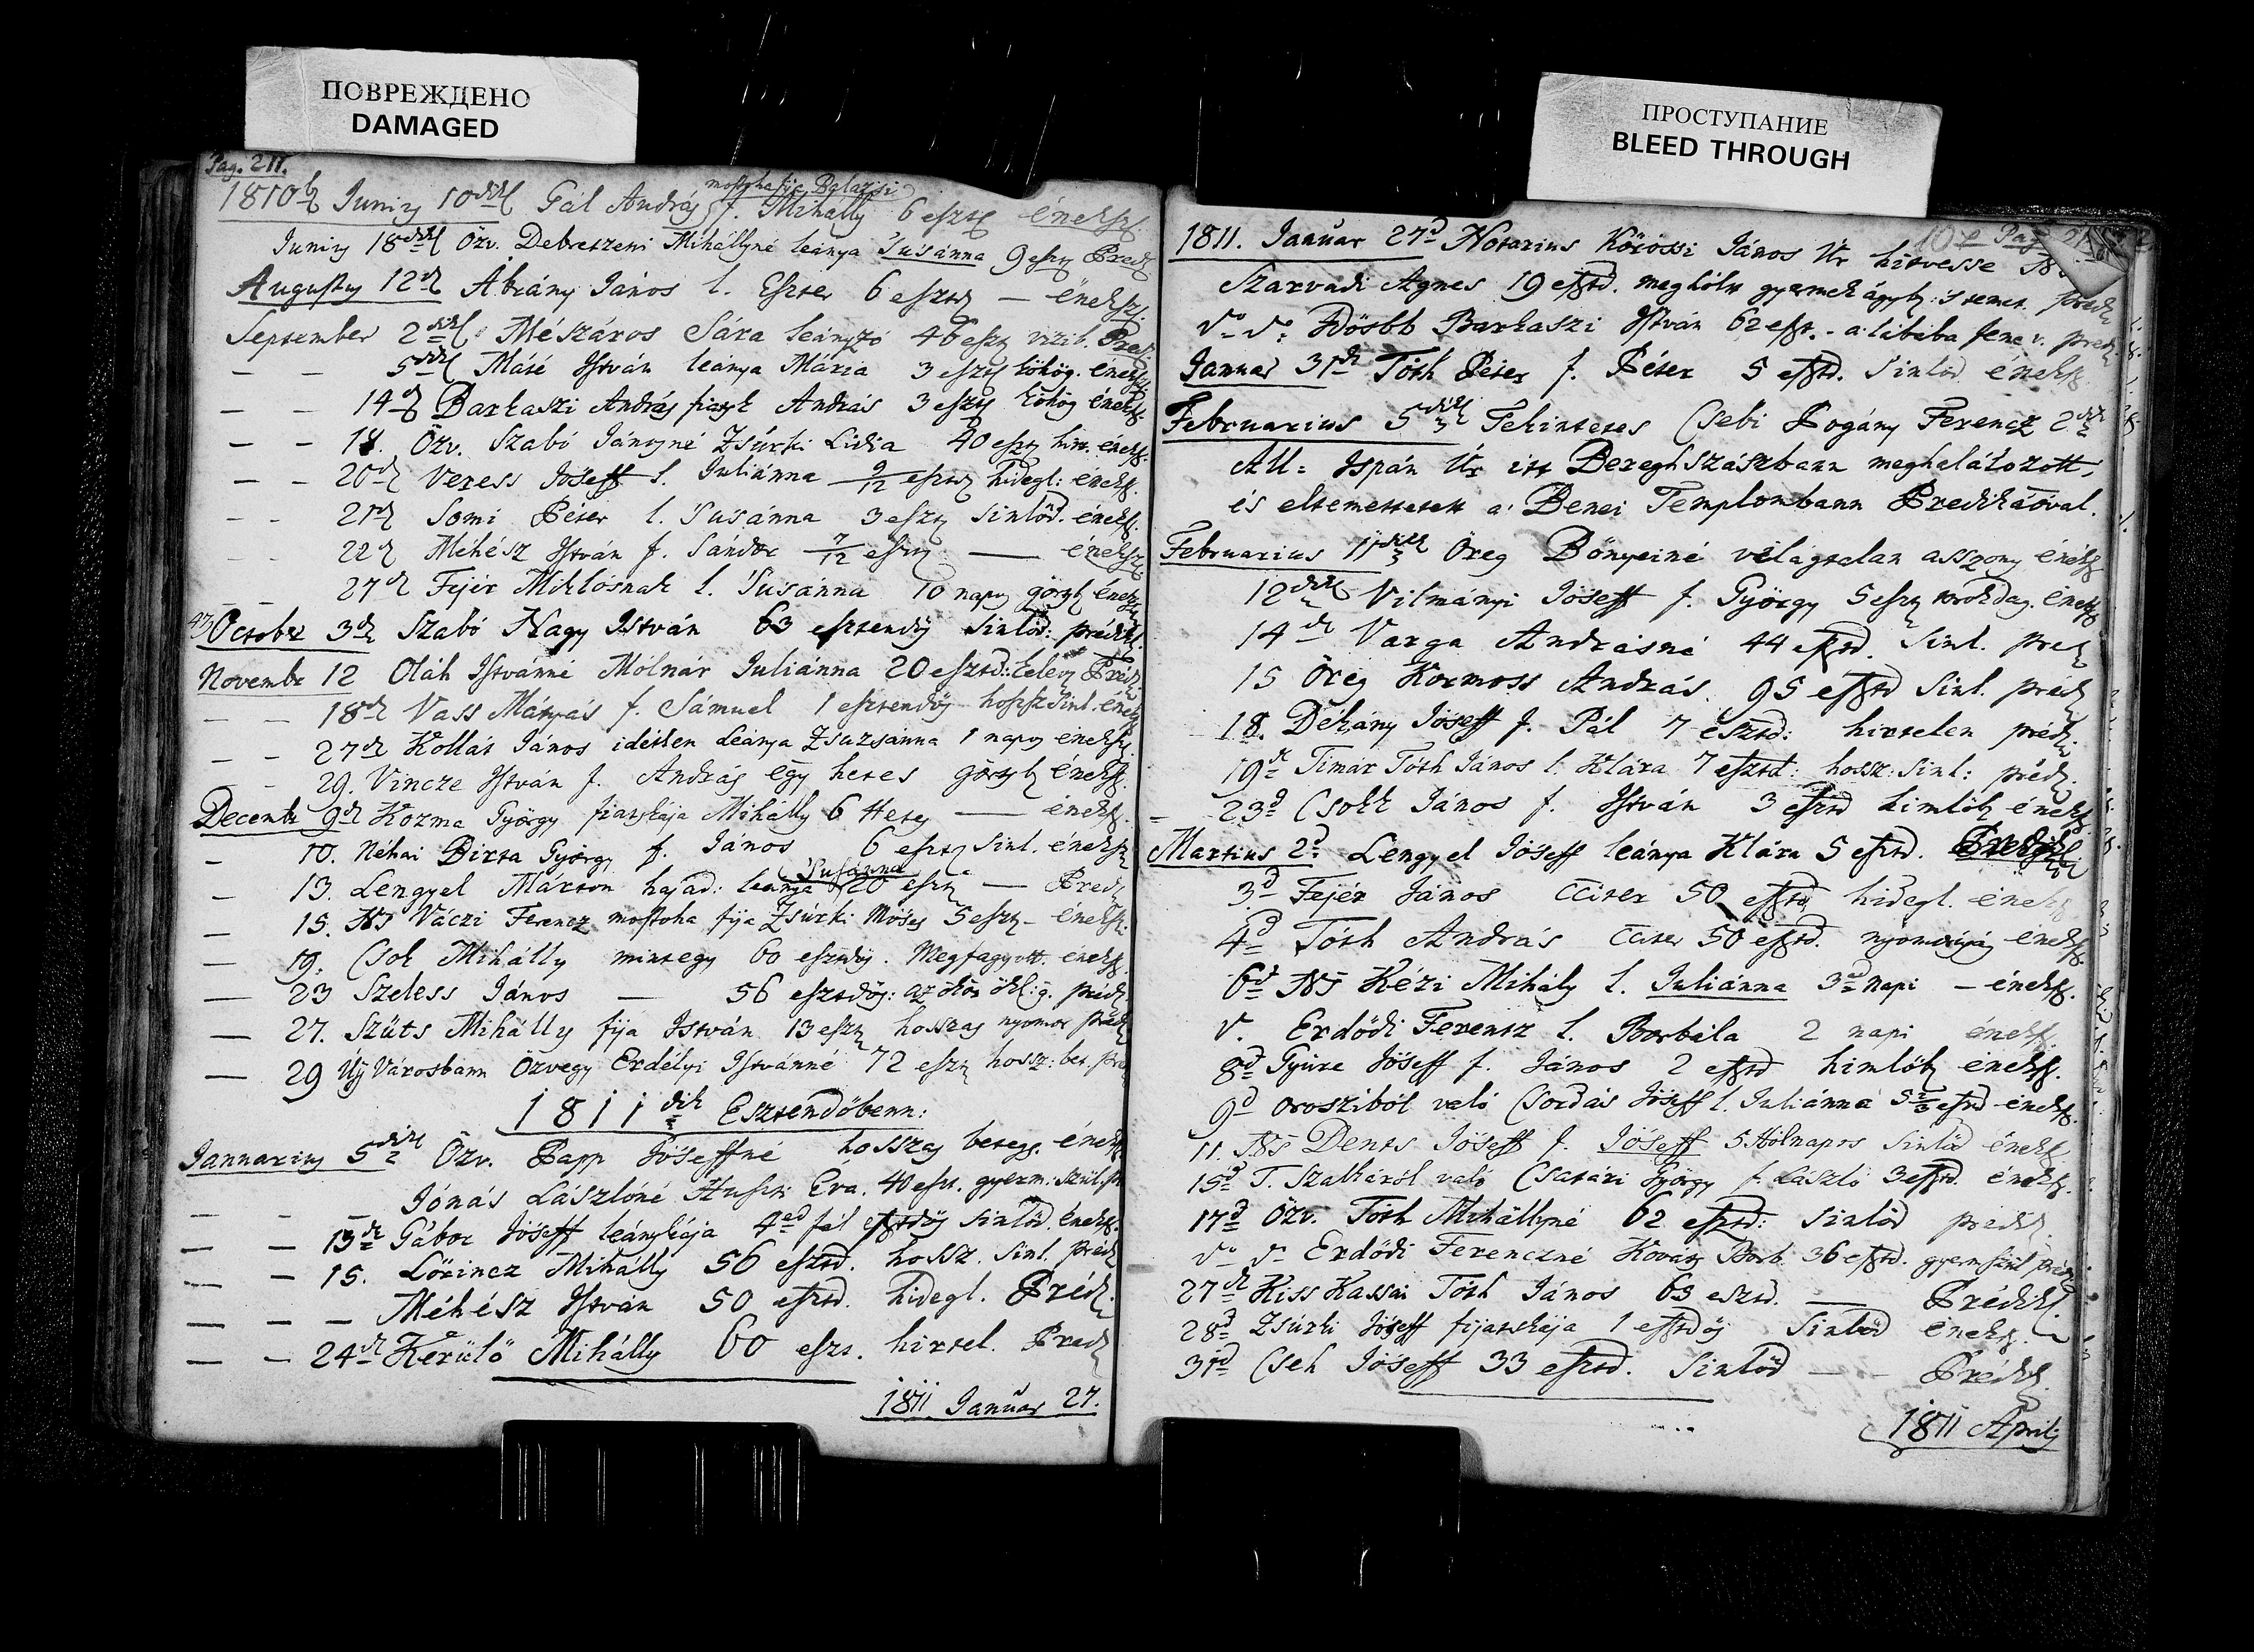 ПОВРЕЖДЕНО
DAMAGED
Pag. 211.
mostoha fija Balazsi
1810b Juniy 10dikl Gál András f. Mihálly 6 eszt énekl.
Juniy 18dikl Özv. Debretzeni Mihállyné leánya Susánna 9 eszt Préd
Augusty 12d Ábrány János l. Eszter 6 esztd — énekl.
September 2dikl Mészáros Sára leányzó 46 eszt vizib. Préd
— — 5dikl Máté István leánya Mária 3 eszt köhög. énekl
— — 14d Barkaszi András fiatsk András 3 eszt köhög énekl
— — 18. Özv. Szabó Jánosné Zsúrki Lidia 40 eszt hirt. énekl.
— — 20d Veress Jóseff l. Juliánna 9/12 eszt hidegl: énekl.
— — 21d Somi Péter l. Susánna 3 eszt Sinlőd. énekl.
— — 22d Méhész István f. Sándor 7/12 eszt — énekl
— — 27d Fejér Miklósnak l. Susánna 10 napos görtsb énekl
October 3d Szabó Nagy István 63 esztendős sinlőd: prédikl
Novembr 12 Oláh Istvánné Mólnár Juliánna 20 esztd: Préd
— — 18d Vass Mátyás f. Sámuel 1 esztendős hossz sinl. énekl
— — 27d Kollár János idétlen Leánya Zsuzsánna 1 napos énekl.
— — 29. Vincze István f. András egy hetes görtsb énekl.
Decembr 9d Kozma György fiatskája Mihálly 6 Hetes — énekl.
— 10. Néhai Birta György f. János 6 eszt Sinl. énekl
Susánna
— 13. Lengyel Márton hajad: leánya 20 eszt — Pred
— 15. Ns Váczi Ferencz mostoha fija Zsúrki Móses 5 eszt — énekl.
— 19. Csok Mihálly mintegy 60 esztdős. Megfagyott. énekl.
— 23 Szeless János — 56 esztdős: préd
— 27. Szüts Mihálly fija István 13 eszt hosszas nyomor préd
— 29 Új Városbann Özvegy Erdélyi Istvánné 72 eszt hossz: bet. préd
1811dik Esztendőbenn:
Januarius 5dik Özv. Papp Jóseffné hosszas betegs. énekl
— — — Jónás Lászlóné Huszti Éva. 40 eszt. gyerm: szül.
— — 13d Gábor Jóseff leánykája 4ed fél esztdős sinlőd. énekl.
— — 15. Lőrincz Mihálly 56 esztd. hossz. Sinl. préd
— — — Méhész István 50 esztd. hidegl. Préd.
— — 24d Kerülő Mihálly 60 eszt. hirtel. Pred
1811 Januar 27.
ПРОСТУПАНИЕ
BLEED THROUGH
1811. Januar 27d Notarius Körössi János Úr hitvesse
Szarvadi Ágnes 19 esztd. meghólt gyermek ágyb: 's temet. préd
do do Idősbb Barkaszi István 62 eszt. préd.
Januar 31d Tóth Péter f. Péter 5 esztd. Sinlőd énekl.
Februarius 5dikl Tekintetes Csebi Pogány Ferencz 2dik
All: Ispán Úr itt Bereghszászbann meghalálozott,
és eltemettetett a' Benei Templombann Predikáóval.
Februarius 11dikl Öreg Bónyeiné világtalan asszony énekl
12dikl Vilmányi Jóseff f. György 5 eszt torokdag. énekl
14d Varga Andrásné 44 esztd. Sinl. pred
15 Öreg Kormoss András. 95 esztd Sinl. préd
18. Déhány Jóseff f. Pál 7 esztd: hirtelen préd.
19d Timár Tóth János l. Klára 7 esztd: hossz: Sinl: préd.
— 23d Csokk János f. István 3 esztd himlőb énekl
Martius 2d Lengyel Jóseff leánya Klára 5 esztd. Predikl
3d Fejér János Citer 50 esztd hidegl. énekl
4d Tóth András Citer 50 esztd. énekl.
6d Ns Kézi Mihály l. Juliánna 3d napi — énekl.
v. Erdődi Ferentz l. Borbála 2 napi énekl.
8d Gyüre Jóseff f. János 2 esztd himlőb énekl.
9d Orosziból való Csordás Jóseff l. Juliánna 5 2/3 esztd énekl.
11. Ns Dents Jóseff f. Jóseff 5 Hólnapos Sinlőd énekl.
15d T. Szalkáról való Csatári György f. László 3 esztd. énekl.
17d Özv. Tóth Mihállyné 62 esztd: Sinlőd prédik.
do do Erdődi Ferenczné Kováts Borb. 36 esztd. gyerm szül préd
27d Kiss Kassai Tóth János 63 esztd. — Prédikl
28d Zsúrki Jóseff fijatskája 1 esztdős Sinlőd énekl.
31d Cseh Jóseff 33 esztd. Sinlőd — Prédikl.
1811 Aprilis